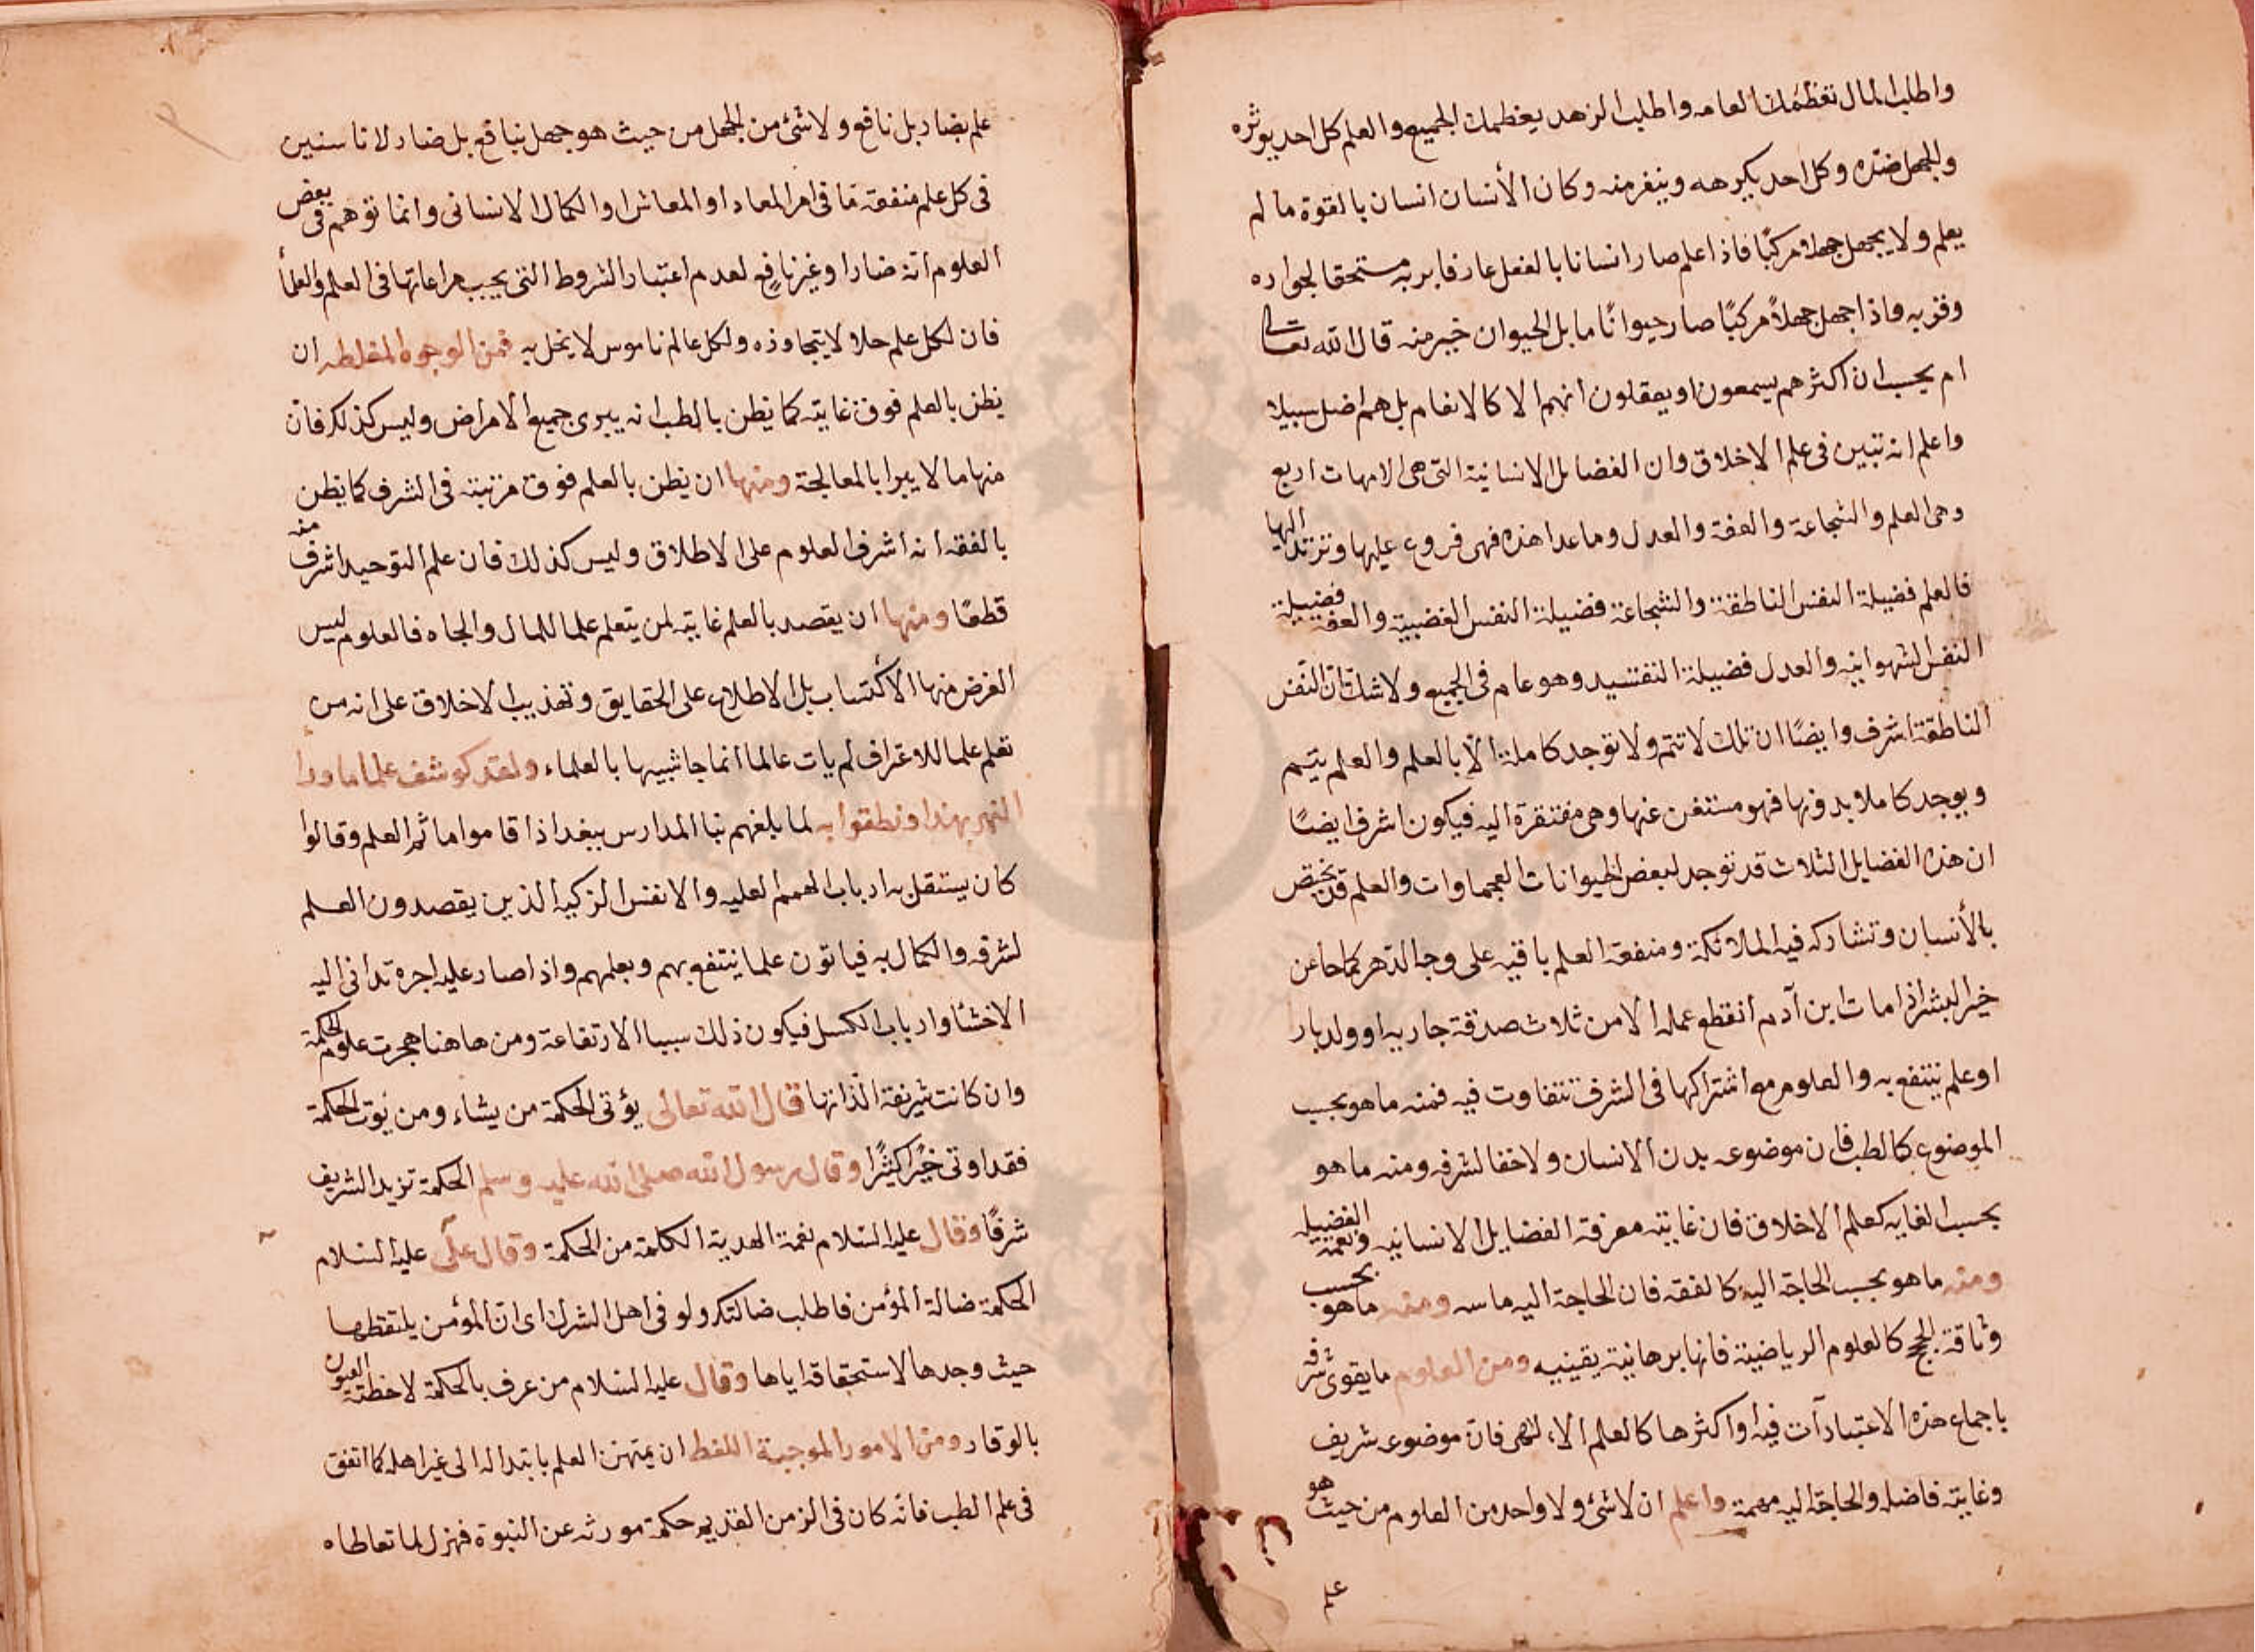 واطلب المال تعظمك العامه واطلب الزهد يعظمك الجميع والعلم كل احد يوثره
والجهل ضده وكل احد يكرهه وينفر منه وكان الأنسان انسان بالقوة ما لم
يعلم ولا يجهل جهلا مركبًا فاذا اعلم صار انسانا بالفعل عارفا بربه مستحقا لجواره
وقربه واذا جهل جهلاً مركبًا صار حيوانًا ما بل الحيوان خير منه قال الله تعالى
ام يحسب ان اكثرهم يسمعون او يعقلون انهم الا كالانعام بل هم اضل سبيلا
واعلم انه تبين فى علم الاخلاق وان الفضايل الانسانية التى هى الامهات اربع
وهى العلم والشجاعة والعفة والعدل وماعدا هذه فهى فروع عليها وترتد اليها
فالعلم فضيلة النفس الناطقة والشجاعة فضيلة النفس الغضبية والعفة فضيلة
النفس الشهوانيه والعدل فضيلة التقسيد وهو عام فى الجميع ولا شك ان النفس
الناطقة اشرف وايضًا ان تلك لا تتم ولا توجد كاملة الا بالعلم والعلم يتم
ويوجد كاملا بدونها فهو مستغن عنها وهى مفتقرة اليه فيكون اشرف ايضًا
ان هذه الفضايل الثلاث قد توجد لبعض الحيوانات العجماوات والعلم قد يختص
بالأنسان وتشاركه فيه الملائكة ومنفعة العلم باقيه على وجه الدهر كما جا عن
خير البشر اذا مات ابن آدم انقطع عمله الا من ثلاث صدقة جاريه او ولد بار
او علم ينتفع به والعلوم مع اشتراكها فى الشرف تتفاوت فيه فمنه ما هو بحسب
الموضوع كالطب فان موضوعه بدن الانسان ولا خفا لشرفه ومنه ما هو
بحسب الغايه كعلم الاخلاق فان غايته معرفة الفضايل الانسانيه ونعمة الفضيله
ومنه ما هو بحسب الحاجة اليه كالفقه فان الحاجة اليه ماسه ومنه ما هو بحسب
وثاقة الحجج كالعلوم الرياضية فانها برهانية يقينيه ومن العلوم ما يقوى شرفه
باجماع هذه الاعتبارآت فيه او اكثرها كالعلم الالهى فان موضوعه شريف
وغايته فاضله والحاجة اليه مهمة واعلم ان لا شئ ولا واحد من العلوم من حيث هو
علم
علم بضار بل نافع ولا شئ من الجهل من حيث هو جهل بنافع بل ضار لانا سنبين
فى كل علم منفعة ما فى امر المعاد او المعاش او الكمال الانسانى وانما توهم فى بعض
العلوم انه ضار او غير نافع لعدم اعتبار الشروط التى يجب مراعاتها فى العلم والعلمأ
فان لكل علم حدا لا يتجاوزه ولكل عالم ناموس لا يخل به فمن الوجوه المغلطه ان
يظن بالعلم فوق غايته كما يظن بالطب انه يبرى جميع الامراض وليس كذلك فان
منها ما لا يبرا بالمعالجة ومنها ان يظن بالعلم فوق مرتبته فى الشرف كما يظن
بالفقه انه اشرف العلوم على الاطلاق وليس كذلك فان علم التوحيد اشرف منه
قطعًا ومنها ان يقصد بالعلم غايته لمن يتعلم علما للمال والجاه فالعلوم ليس
الغرض منها الاكتساب بل الاطلاع على الحقايق وتهذيب الاخلاق على انه من
تعلم علما للاغراف لم يات عالما انما جا شبيها بالعلماء ولقد كوشف علما ما ورا
النهر بهذا ونطقوا به لما بلغهم بنا المدارس ببغداذ اقاموا ماثم العلم وقالوا
كان يستقل به ارباب الهمم العليه والانفس الزكيه الذين يقصدون العلم
لشرفه والكمال به فياتون علما ينتفع بهم وبعلمهم واذا صار عليه اجره تدانى اليه
الاخشا وارباب الكسل فيكون ذلك سببا الارتفاعه ومن هاهنا هجرت علوم الحكمة
وان كانت شريفة الذاتها قال الله تعالى يؤتى الحكمة من يشاء ومن يؤت الحكمة
فقد اوتى خيرًا كثيرًا وقال رسول الله صلى الله عليه وسلم الحكمة تزيد الشريف
شرفًا وقال عليه السلام نعمة الهدية الكلمة من الحكمة وقال على عليه السلام
الحكمة ضالة المؤمن فاطلب ضالتك ولو فى اهل الشرك اى ان المؤمن يلتقطها
حيث وجدها لاستحقاقه اياها وقال عليه السلام من عرف بالحكمة لاحظته العيون
بالوقار ومن الامور الموجبة اللغط ان يمتهن العلم بابتداله الى غير اهله كما اتفق
فى علم الطب فانه كان فى الزمن القديم حكمة مورثه عن النبوة فهزل لما تعاطاه